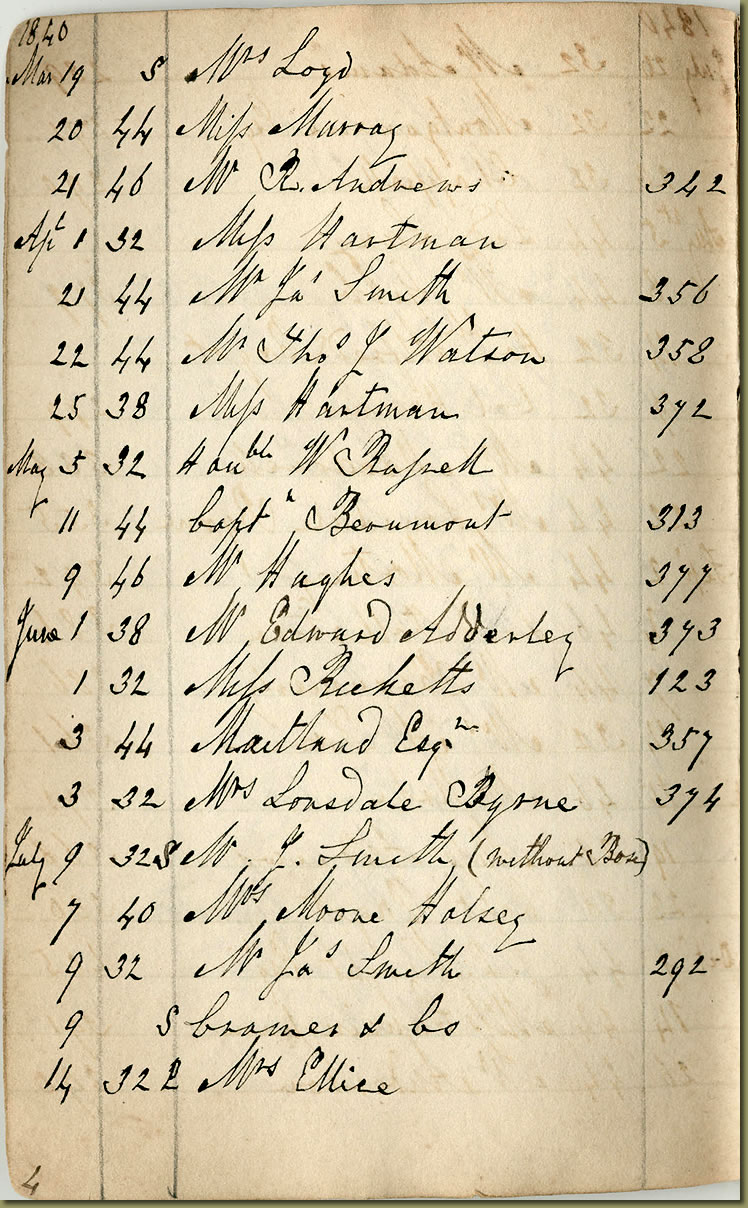 1840
Mar 19 S Mrs Loyd
20 44 Miss Murray
21 46 Mr R. Andrews 342
Apl 1 32 Miss Hartman
21 44 Mr Jas Smith 356
22 44 Mr Thos J Watson 358
25 38 Miss Hartman 372
May 5 32 Honble W Russell
11 44 Captn Beaumont 313
9 46 Mr Hughes 377
June 1 38 Mr Edward Adderley 373
1 32 Miss Ricketts 123
3 44 Maitland Esqr 357
3 32 Mrs Lonsdale Byrne 374
July 9 32 S Mr J. Smith (without Box)
7 40 Mrs Moore Halsey
9 32 Mr Jas Smith 292
9 S Cramer & Co
14 32 Mrs Ellice
4